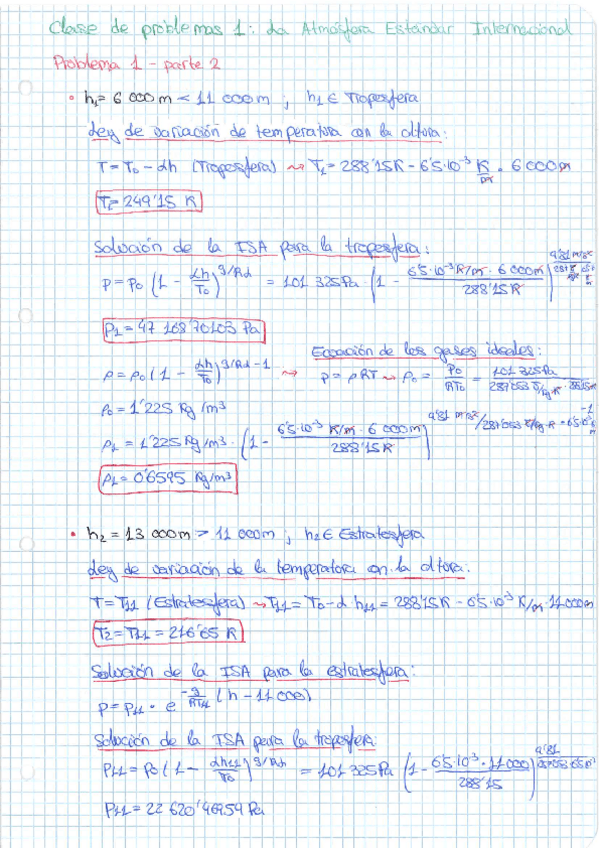 Clase de problemas 1: La Atmósfera Estándar Internacional
Problema 1 - parte 2
• h₁= 6 000m < 11 000m ; h₁ ∈ Troposfera
Ley de variación de temperatura con la altura:
T = T₀ - αh (Troposfera) ⇝ T₁ = 288'15K - 6'5·10⁻³ K/m · 6 000m
T₁= 249'15 K
Solución de la ISA para la troposfera:
P = P₀ (1 - αh/T₀)^g/Rα = 101 325Pa · (1 - 6'5·10⁻³K/m · 6 000m / 288'15K)
P₁ = 47 168'70103 Pa
Ecuación de los gases ideales:
ρ = ρ₀ (1 - αh/T₀)^g/Rα - 1 ⇝ P = ρRT ⇝ ρ₀ = P₀/RT₀ = 101 325Pa
ρ₀ = 1'225 Kg/m³
ρ₁ = 1'225 Kg/m³ · (1 - 6'5·10⁻³ K/m · 6 000m / 288'15K)
ρ₁ = 0'6595 Kg/m³
• h₂ = 13 000m > 11 000m ; h₂ ∈ Estratosfera
Ley de variación de la temperatura con la altura:
T = T₁₁ (Estratosfera) ⇝ T₁₁ = T₀ - α·h₁₁ = 288'15K - 6'5·10⁻³ K/m · 11 000m
T₂ = T₁₁ = 216'65 K
Solución de la ISA para la estratosfera:
P = P₁₁ · e^-g/RT₁₁ (h - 11 000)
Solución de la ISA para la troposfera:
P₁₁ = P₀ (1 - αh₁₁/T₀)^g/Rα = 101 325Pa (1 - 6'5·10⁻³ · 11 000 / 288'15)
P₁₁ = 22 620'46954 Pa